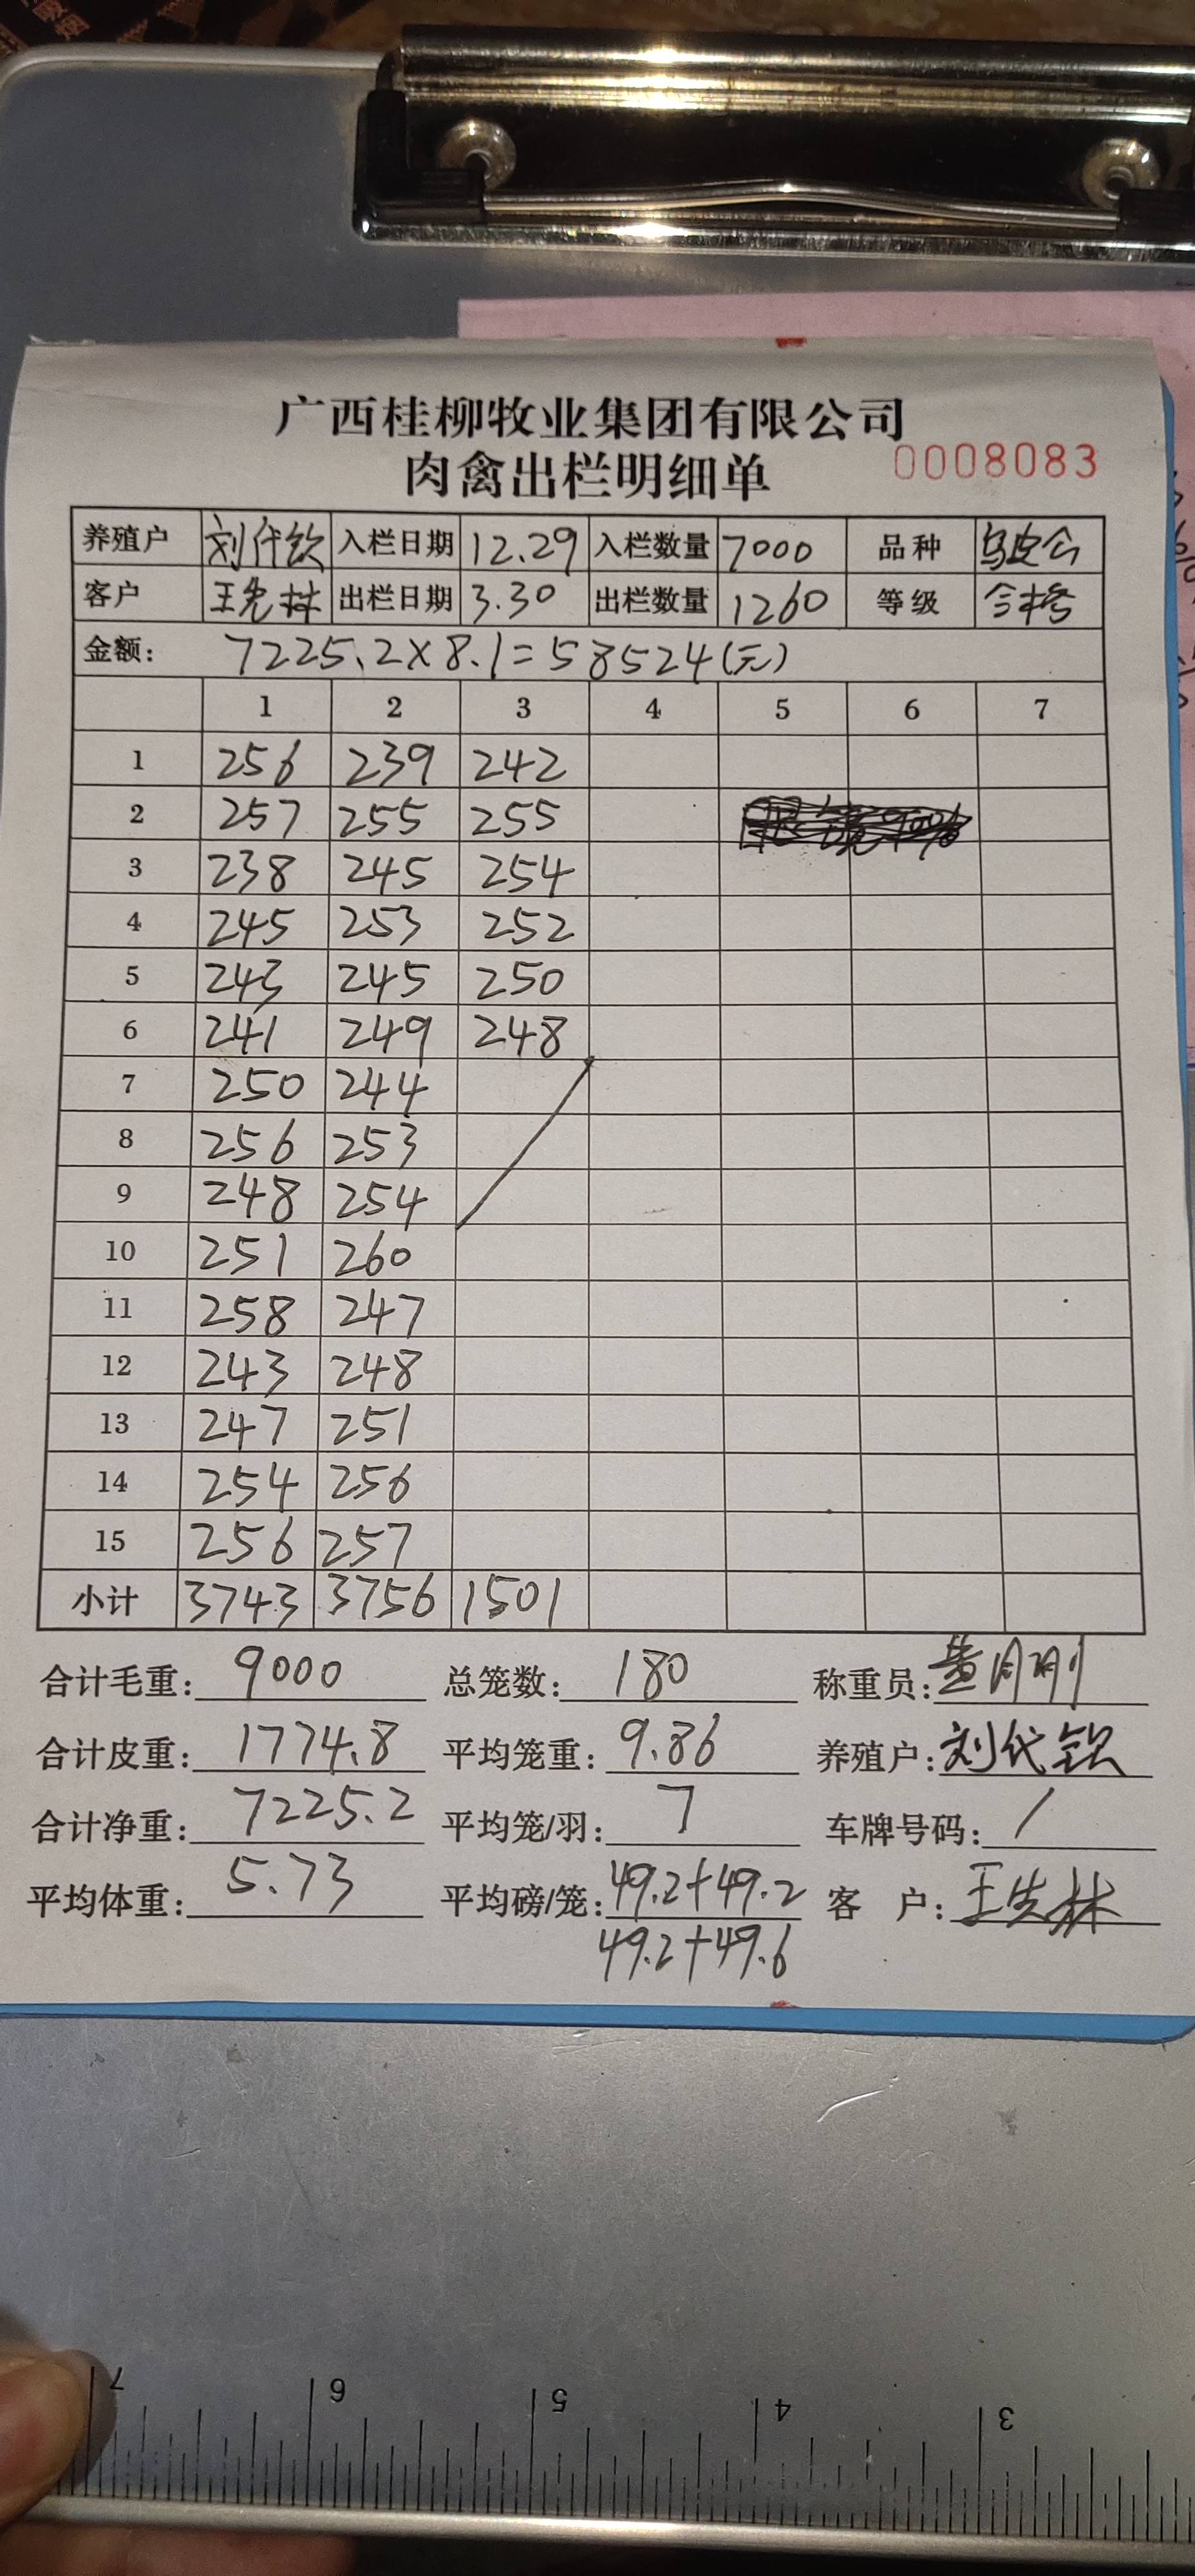 广西桂柳牧业集团有限公司
肉禽出栏明细单 0008083
养殖户 刘代钦 入栏日期 12.29 入栏数量 7000 品种 乌皮公
客户 王先林 出栏日期 3.30 出栏数量 1260 等级 合格
金额: 7225.2×8.1=58524(元)
1 2 3 4 5 6 7
1 256 239 242
2 257 255 255
3 238 245 254
4 245 253 252
5 243 245 250
6 241 249 248
7 250 244
8 256 253
9 248 254
10 251 260
11 258 247
12 243 248
13 247 251
14 254 256
15 256 257
小计 3743 3756 1501
合计毛重: 9000 总笼数: 180 称重员:
合计皮重: 1774.8 平均笼重: 9.86 养殖户: 刘代钦
合计净重: 7225.2 平均笼/羽: 7 车牌号码: /
平均体重: 5.73 平均磅/笼: 49.2+49.2 客 户: 王先林
49.2+49.6
7 6 5 4 3